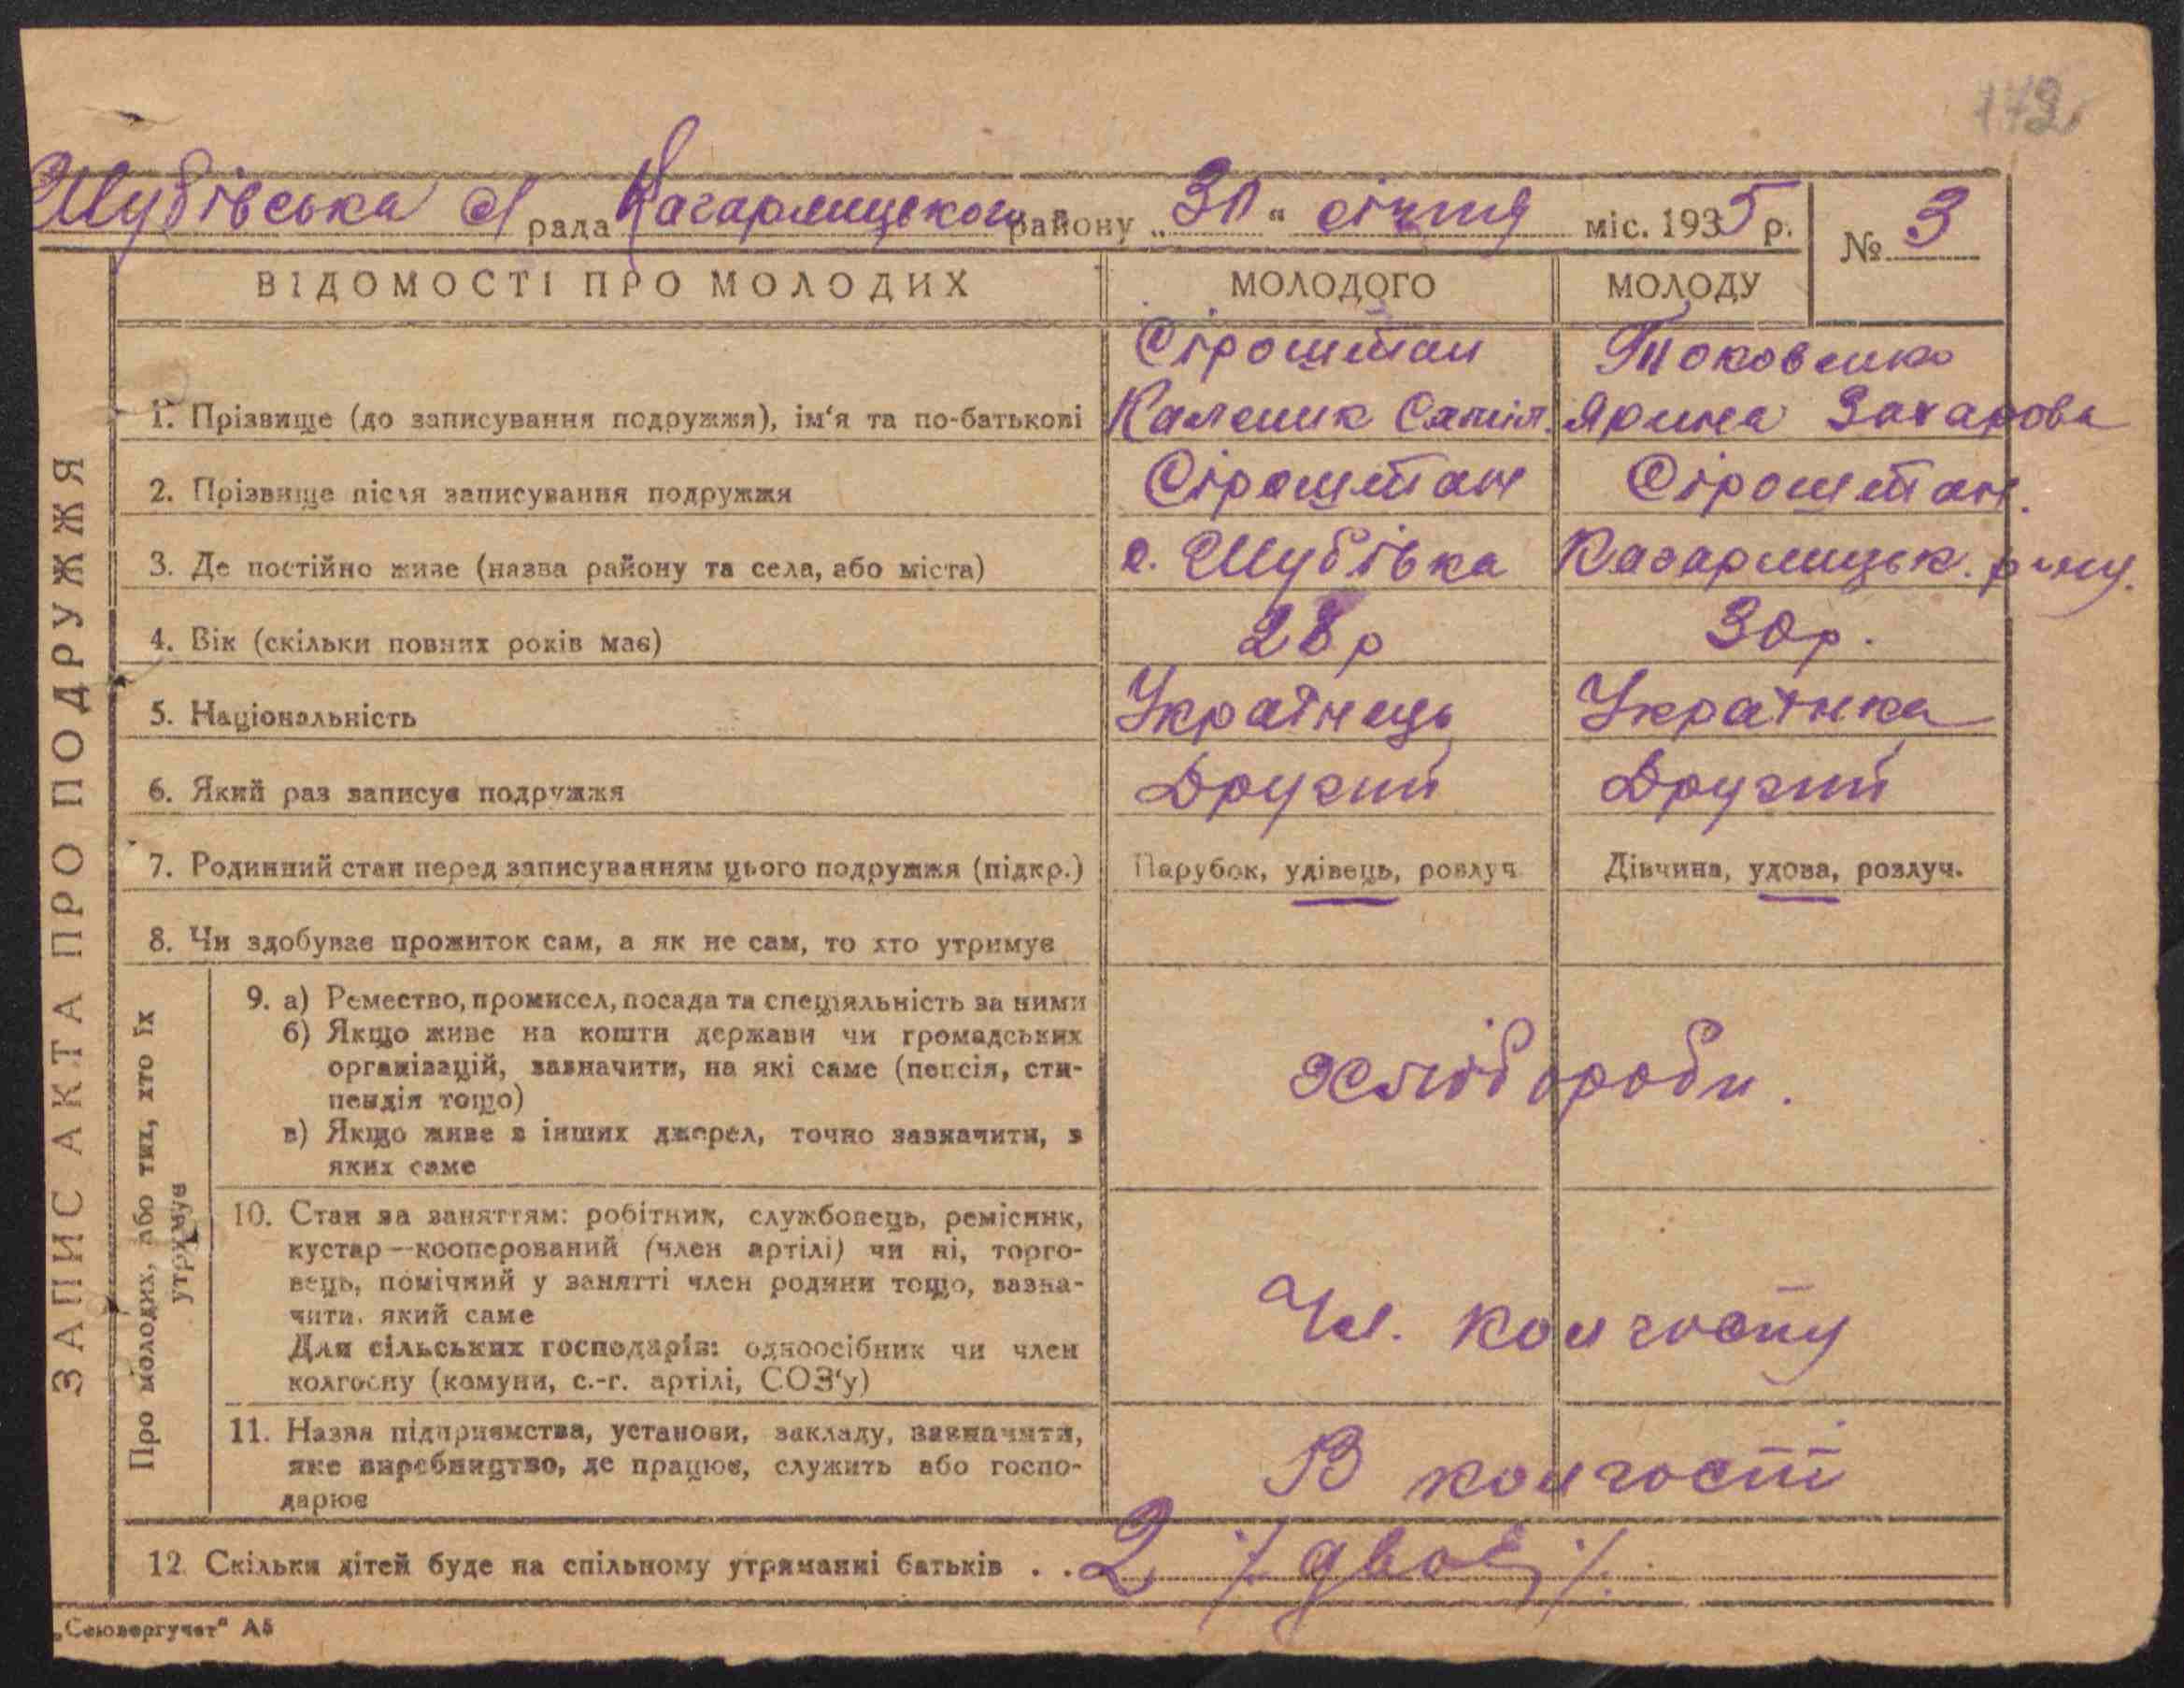 172
Шубівська с/ рада Кагарлицького району „30“ січня міс. 1935 р.
№ 3
ВІДОМОСТІ ПРО МОЛОДИХ МОЛОДОГО МОЛОДУ
Сіроштан Токовенко
1. Прізвище (до записування подружжя), ім‘я та по-батькові Каленик Самійл. Ярина Захарова
2. Прізвище після записування подружжя Сіроштан Сіроштан.
3. Де постійно живе (назва району та села, або міста) с. Шубівка Кагарлицьк. р-ну.
4. Вік (скільки повних років має) 28 р 30 р.
5. Національність Українець Українка
6. Який раз записує подружжя Другий Другий
7. Родинний стан перед записуванням цього подружжя (підкр.) Парубок, удівець, розлуч. Дівчина, удова, розлуч.
8. Чи здобуває прожиток сам, а як не сам, то хто утримує
9. а) Ремество, промисел, посада та спеціяльність за ними
б) Якщо живе на кошти держави чи громадських
організацій, зазначити, на які саме (пенсія, сти-
пендія тощо)
в) Якщо живе з інших джерел, точно зазначити, з
яких саме
Хлібороби.
10. Стан за заняттям: робітник, службовець, ремісник,
кустар—кооперований (член артілі) чи ні, торго-
вець, помічний у занятті член родини тощо, зазна-
чити, який саме
Для сільських господарів: одноосібник чи член
колгоспу (комуни, с.-г. артілі, СОЗ‘у)
Чл. колгоспу
11. Назва підприємства, установи, закладу, зазначити,
яке виробництво, де працює, служить або госпо-
дарює
В колгоспі
12. Скільки дітей буде на спільному утриманні батьків . . 2 /двоє/.
ЗАПИС АКТА ПРО ПОДРУЖЖЯ
Про молодих, або тих, хто їх
утримує
„Союзоргучет“ А5